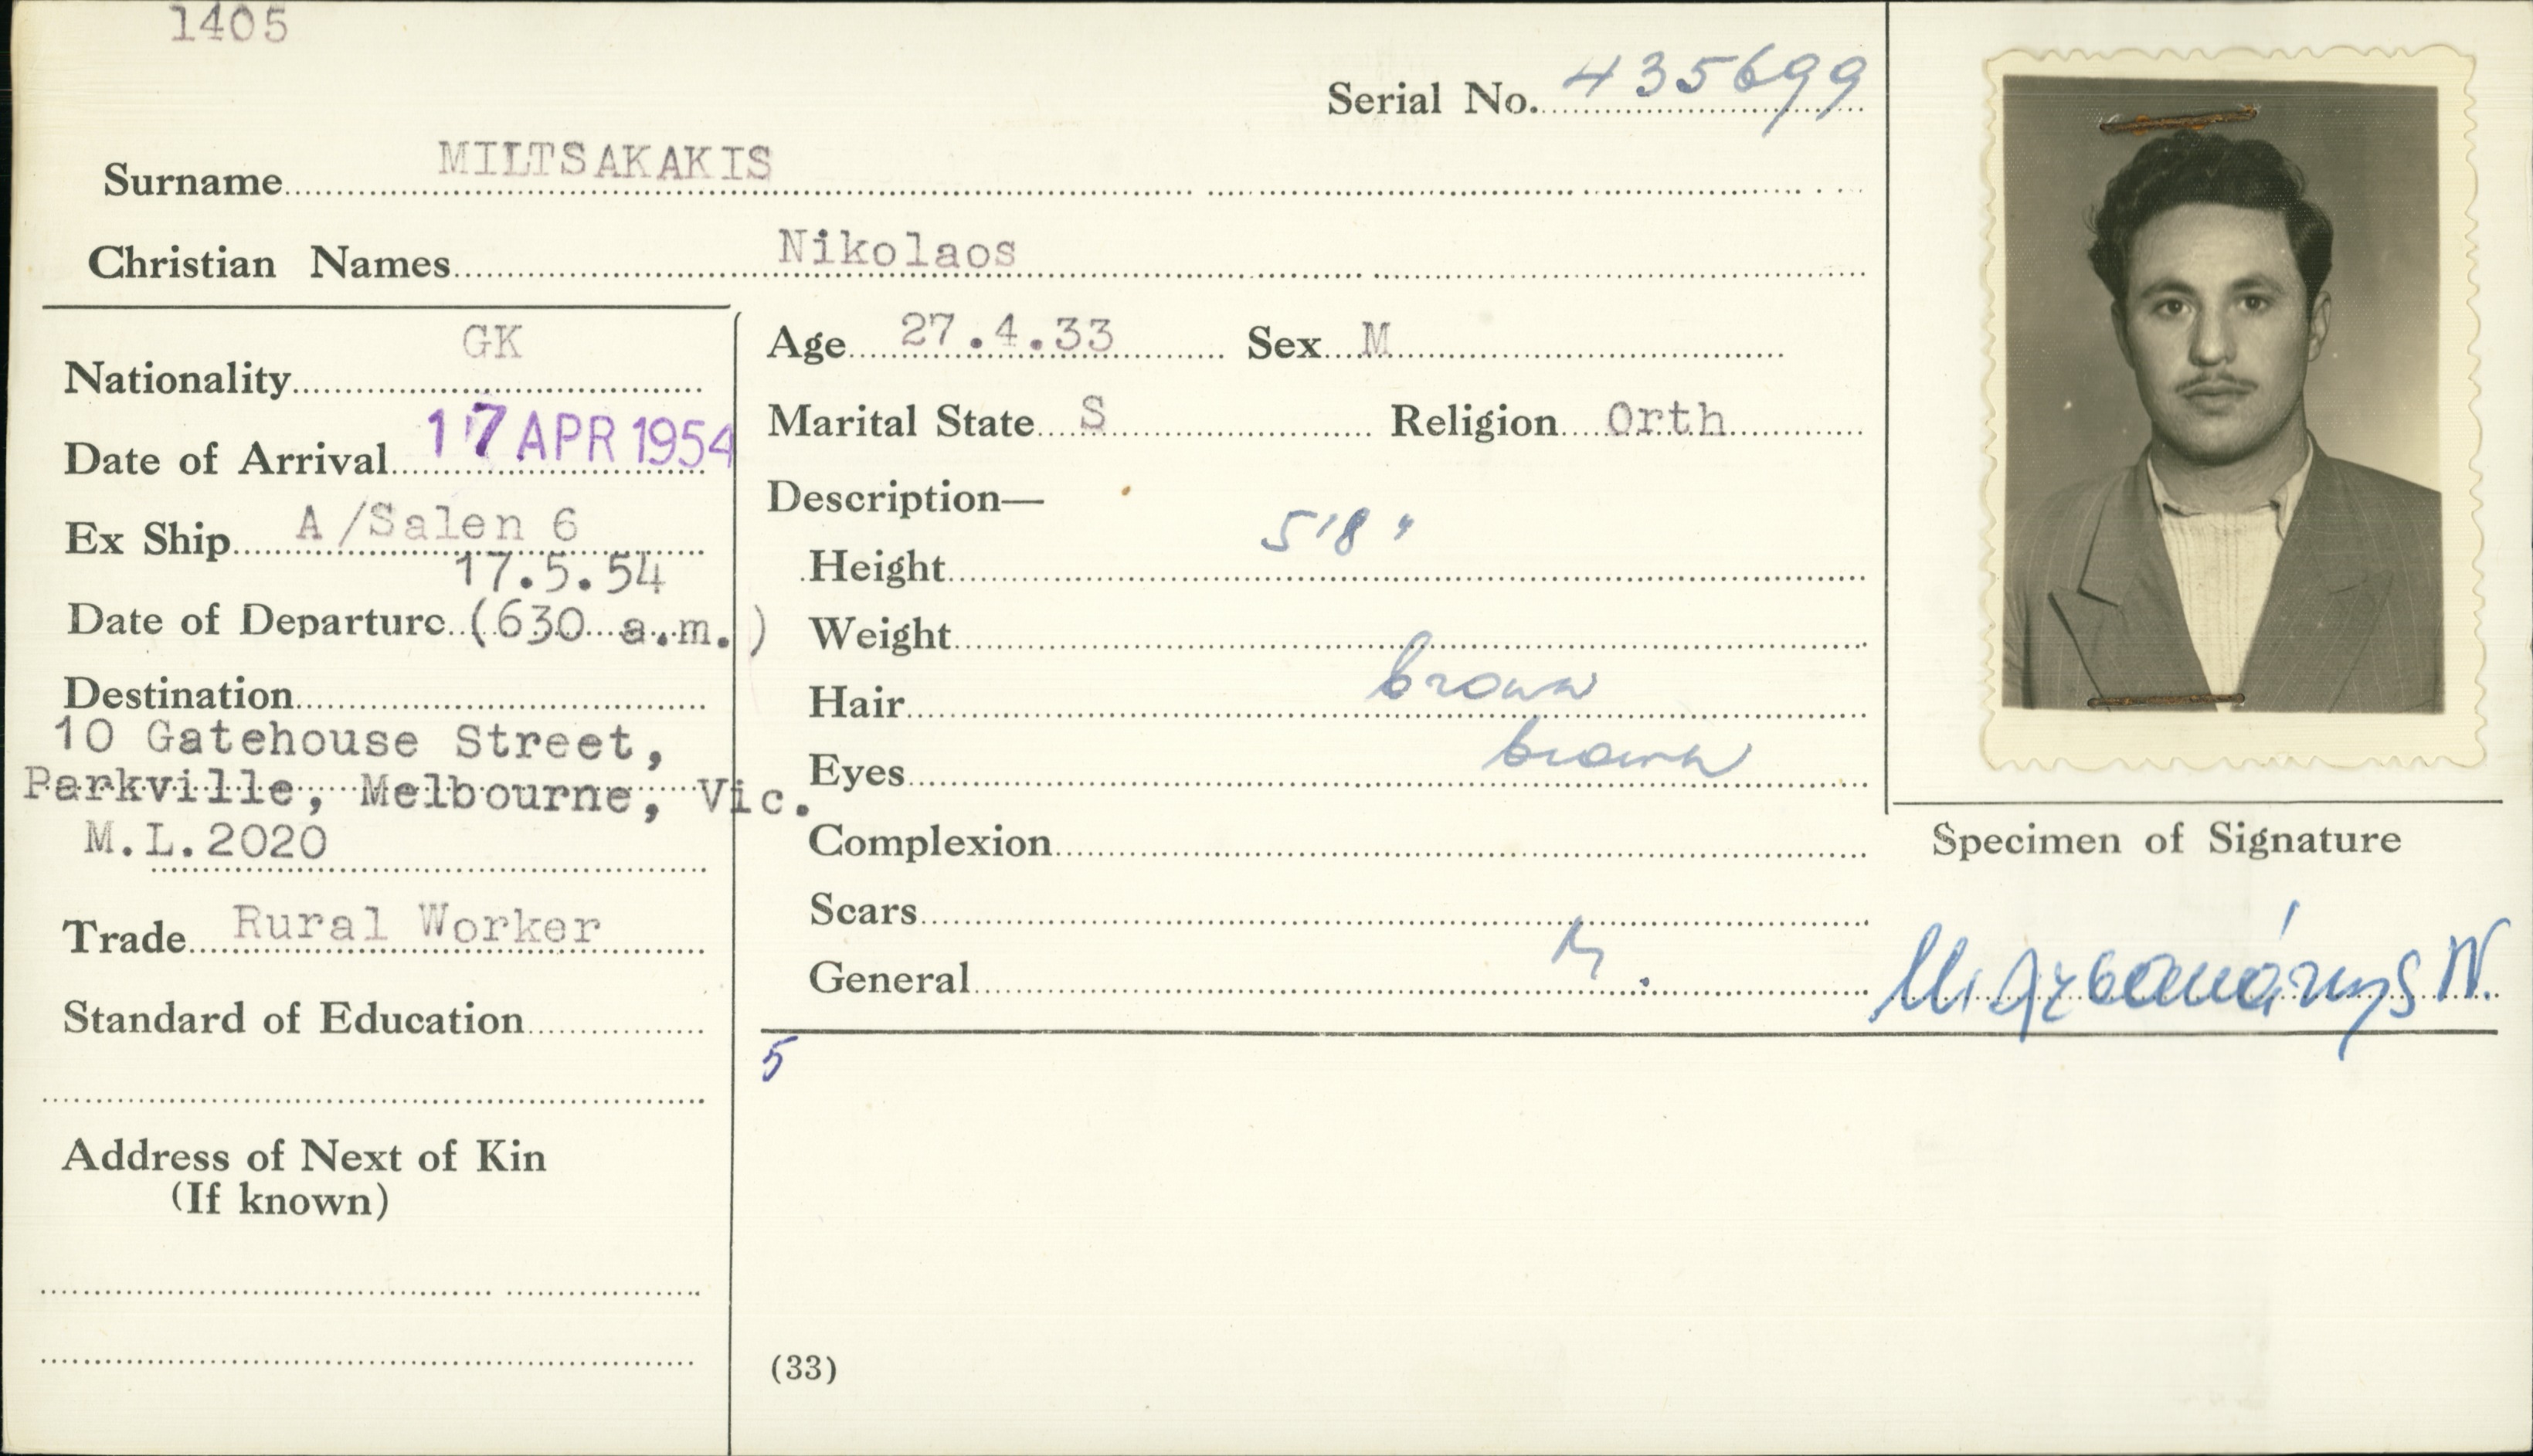 1405
Serial No. 435699
Surname MILTSAKAKIS
Christian Names Nikolaos
Nationality GK
Date of Arrival 17 APR 1954
Ex Ship A/Salen 6
17.5.54
Date of Departure (630 a.m.)
Destination
10 Gatehouse Street,
Parkville, Melbourne, Vic.
M.L.2020
Trade Rural Worker
Standard of Education
Address of Next of Kin
(If known)
Age 27.4.33 Sex M
Marital State S Religion Orth
Description—
Height 5'8"
Weight
Hair brown
Eyes brown
Complexion
Scars
General
5
(33)
Specimen of Signature